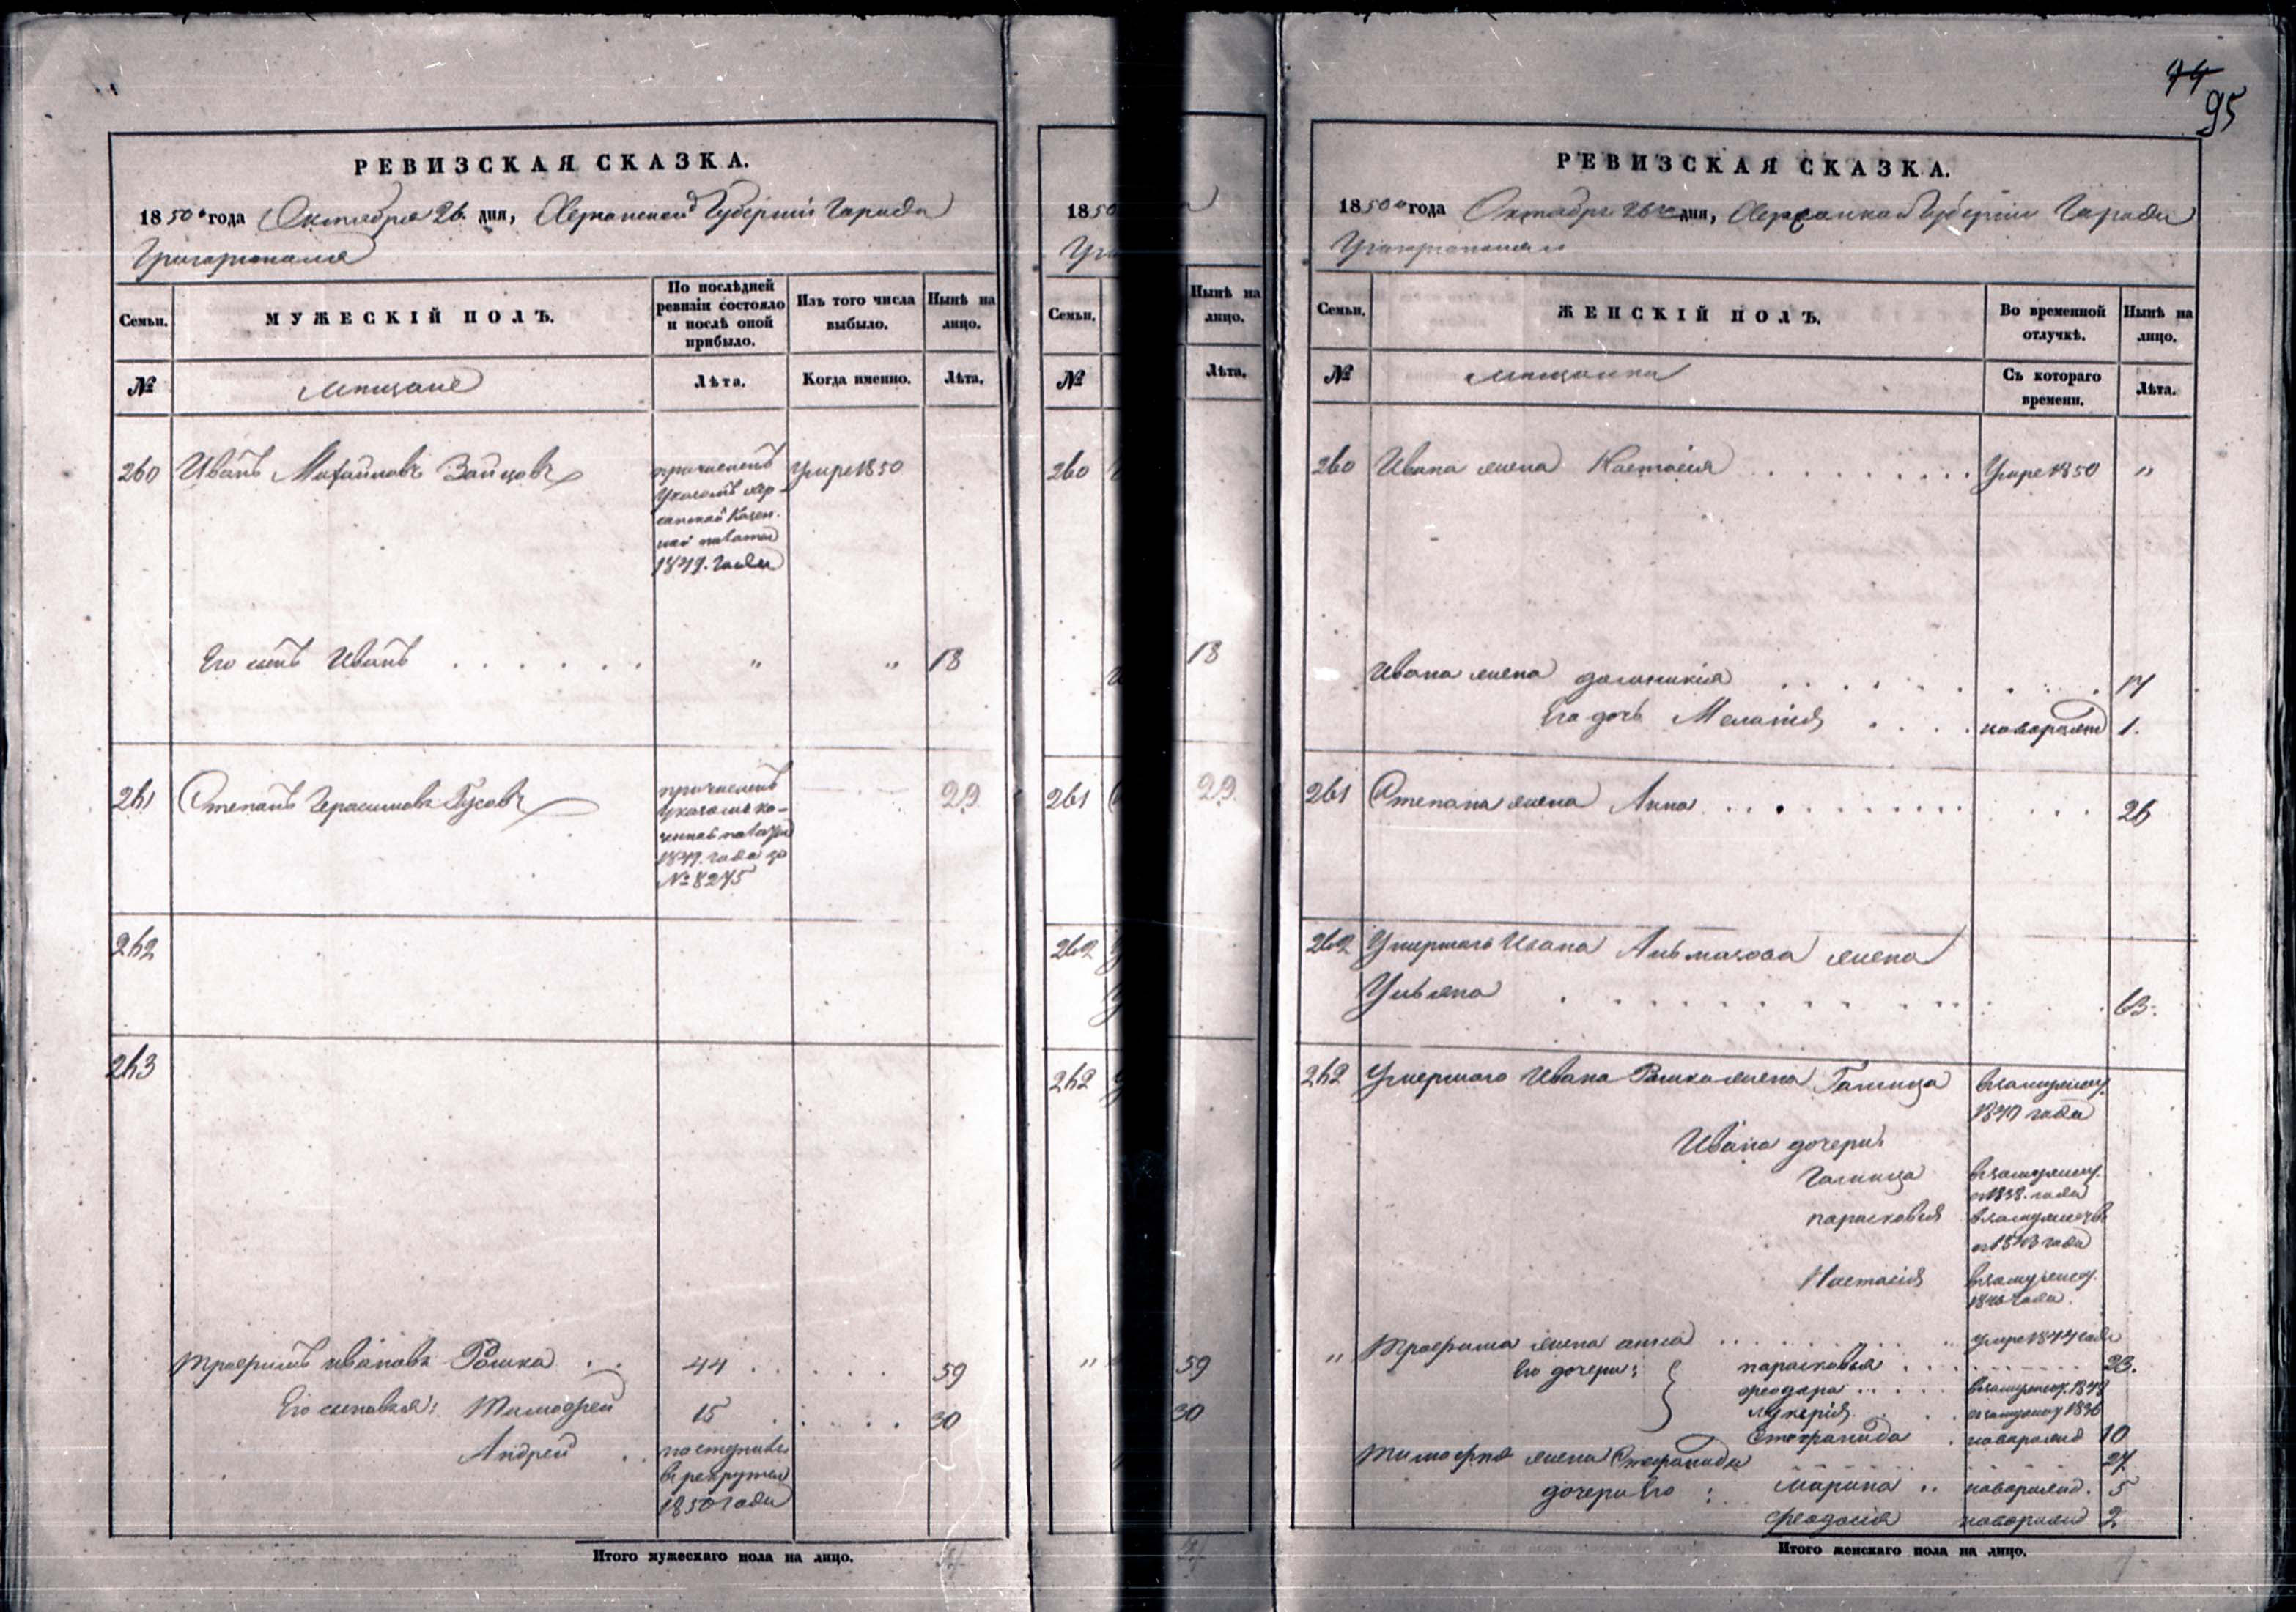 44
95
РЕВИЗСКАЯ СКАЗКА.
1850 года Октября 26 дня, Херсонской Губернии Города
Григориополя
Семьи.
МУЖЕСКІЙ ПОЛЪ.
По послѣдней ревизіи состояло и послѣ оной прибыло.
Изъ того числа выбыло.
Нынѣ на лицо.
№
мещане
Лѣта.
Когда именно.
Лѣта.
260 Иванъ Михайловъ Зайцовъ
причисленъ Указомъ Херсонской Казенной палаты 1849. года
умре 1850
Его сынъ Иванъ . . . . . . " " 18
261 Степанъ Герасимовъ Гусовъ
причисленъ
1849. года за
№ 8275
29
262
263
Трофимъ Ивановъ Рошка . . 44 . . . . . 59
Его сыновья: Тимофей 15 . . . . . 30
Андрей . .
поступилъ
в рекруты
1850 года
Итого мужескаго пола на лицо.
1850
Гри
Семьи.
Нынѣ на лицо.
№
Лѣта.
260
18
261
29
262
262
"
59
30
РЕВИЗСКАЯ СКАЗКА.
1850 года Октября 26 дня, Херсонской Губернии Города
Григориополя
Семьи.
ЖЕНСКІЙ ПОЛЪ.
Во временной отлучкѣ.
Нынѣ на лицо.
№
мещанки
Съ котораго времени.
Лѣта.
260 Ивана жена Настасия . . . . . . . . . Умре 1850 "
Ивана жена . . . . . . . . . 17
Его дочь Мелания . . . . новорожд 1.
261 Степана жена Анна . . . . . . . . . . . . . 26
262 Умершаго Ивана жена
Ульяна . . . . . . . . . . . . 63.
262 Умершаго Ивана Рошка жена
в замужест.
1840 года
Ивана дочери:
в замужест.
1838. года
парасковия
в замужествѣ
года
Настасия
в замужест.
1846 года.
" Трофима жена анна . . . . . . . . умре 1844 года
Его дочери: { парасковия . . . . . . . 23.
феодора . . . . в замужест. 1848
лукерия . . в замужест 1836
Стефанида . новорожд 10
Тимофея жена Стефанида . . . . . . 27.
дочери Его : марина . . новорожд. 5
феодосия новорожд 2
Итого женскаго пола на лицо.